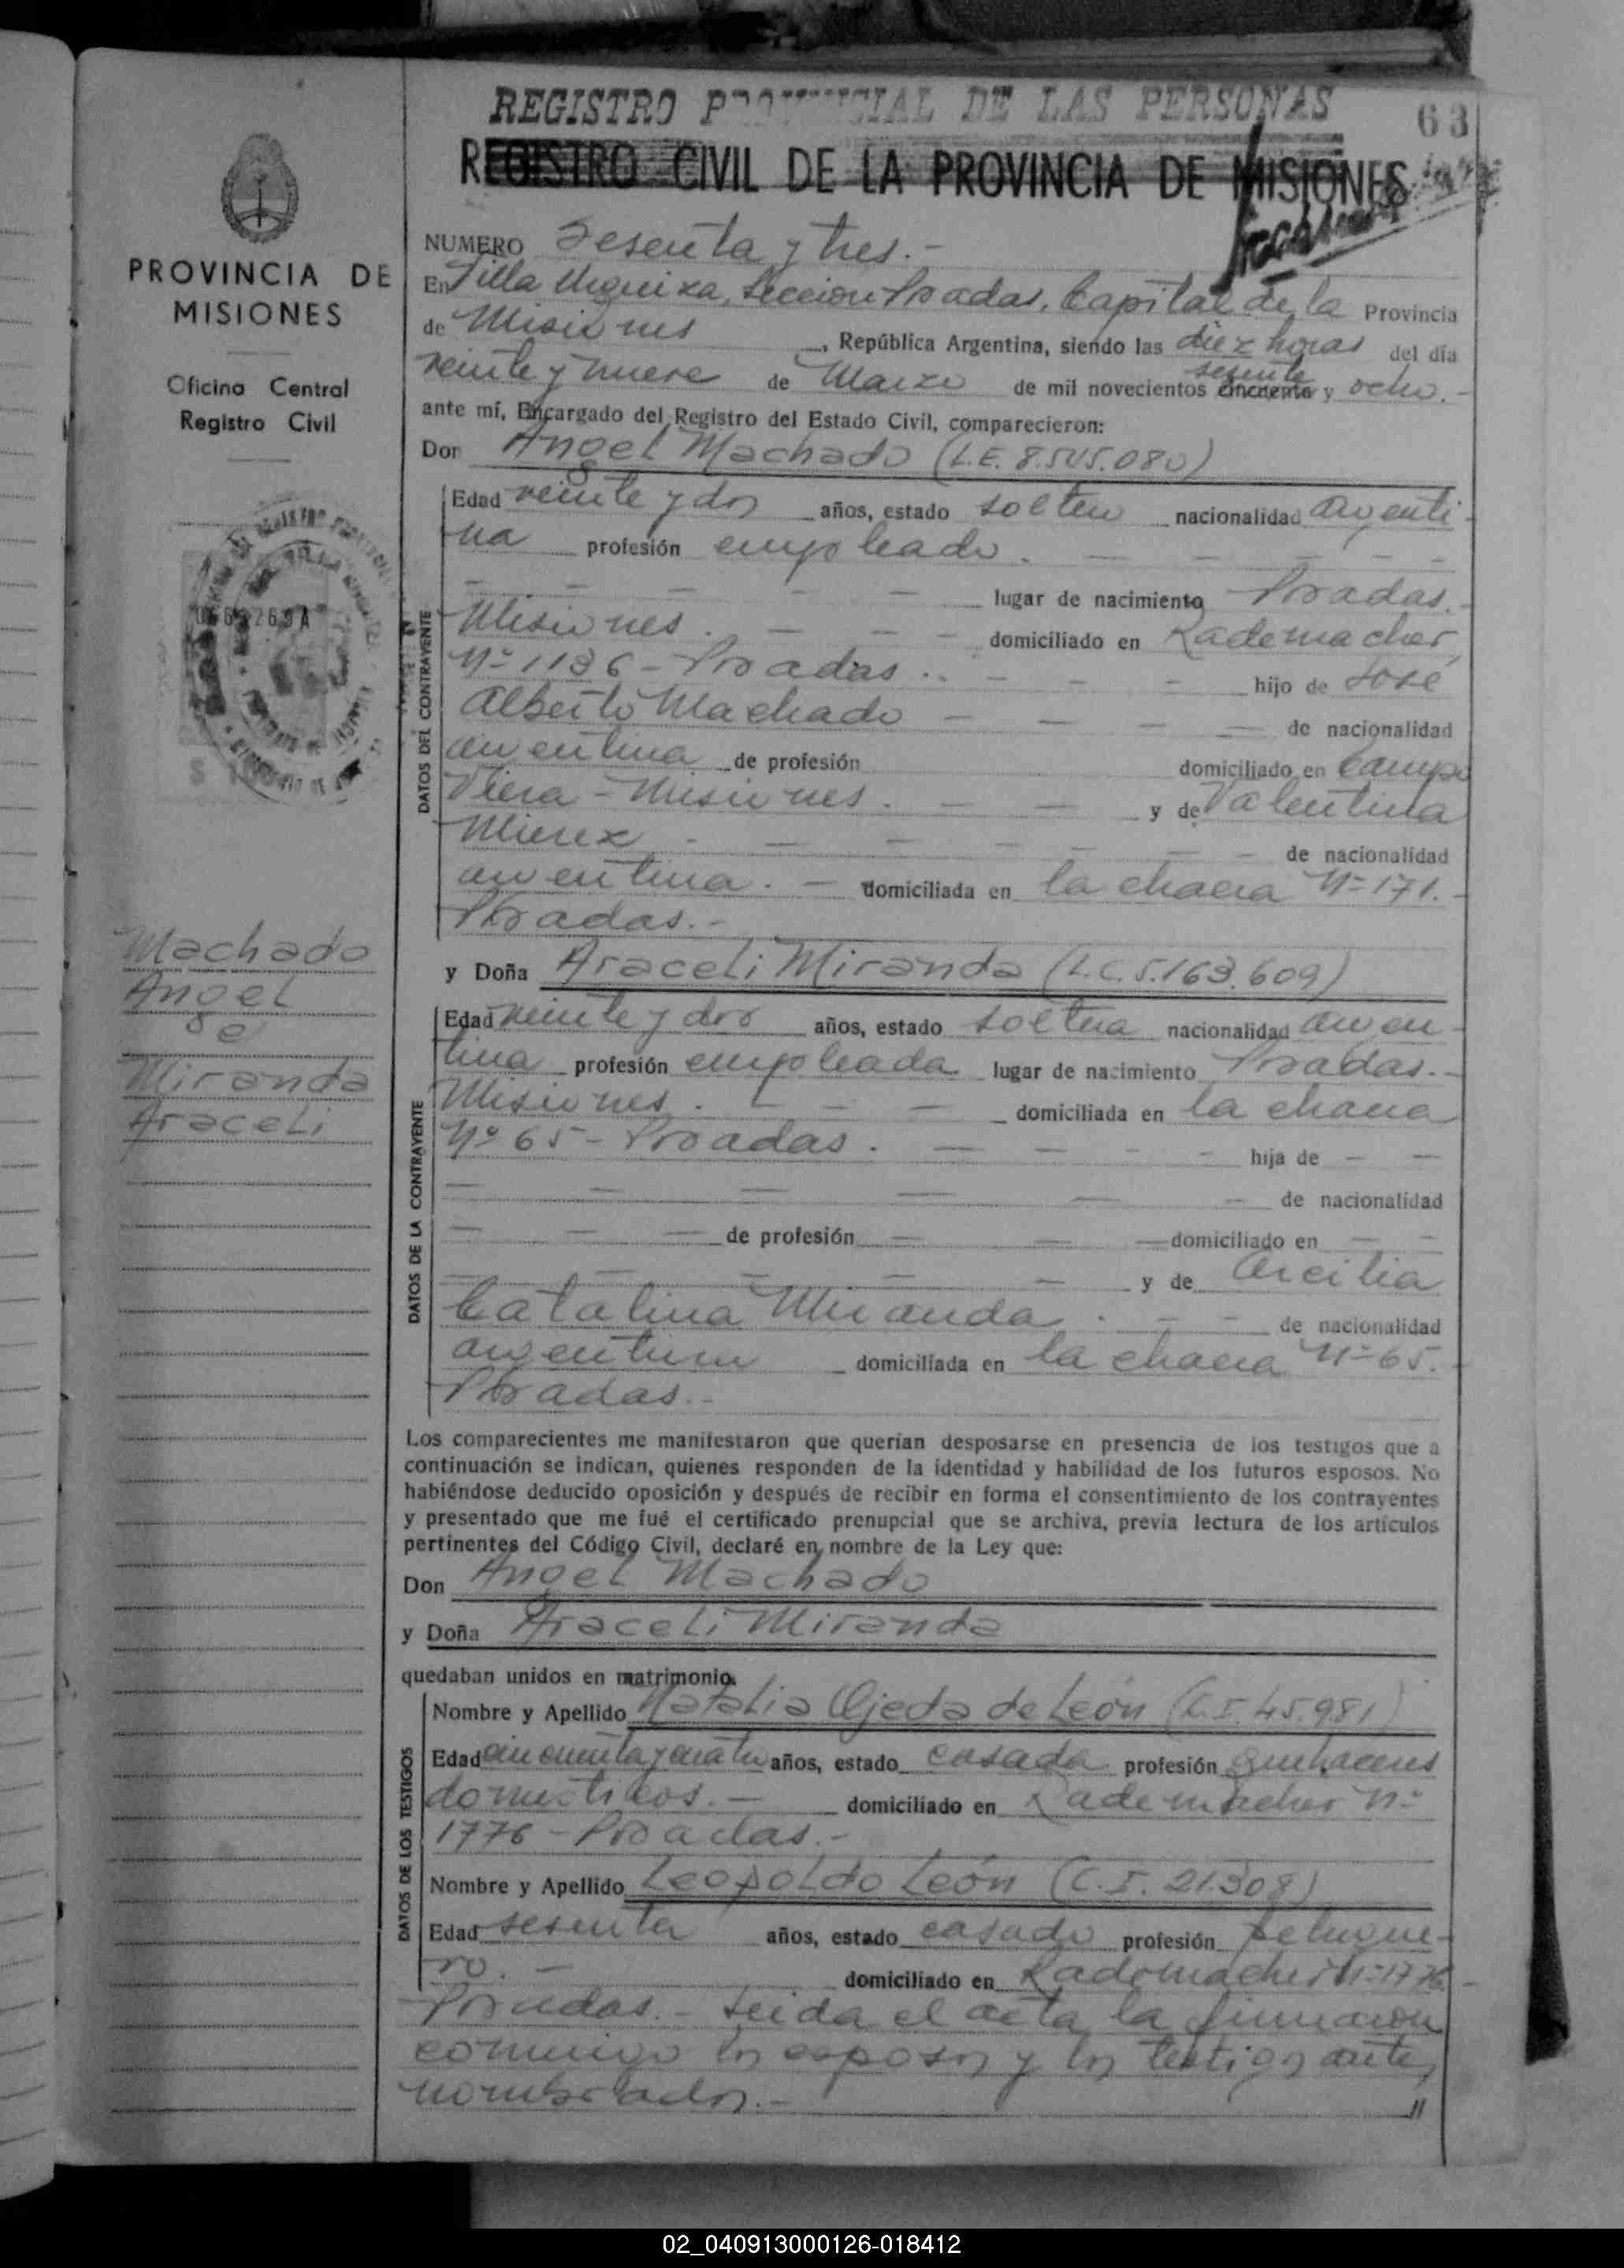 REGISTRO PROVINCIAL DE LAS PERSONAS
63
REGISTRO CIVIL DE LA PROVINCIA DE MISIONES
PROVINCIA DE
MISIONES
Oficina Central
Registro Civil
Machado
Angel
c/
Miranda
Araceli
NUMERO Sesenta y tres.-
En Villa Urquiza, Sección Posadas, Capital de la Provincia
de Misiones, República Argentina, siendo las diez horas del día
veinte y nueve de Marzo de mil novecientos cincuenta sesenta y ocho.-
ante mí, Encargado del Registro del Estado Civil, comparecieron:
Don Angel Machado (L.E. 8.545.080)
DATOS DEL CONTRAYENTE
Edad veinte y dos años, estado soltero nacionalidad argenti-
na profesión empleado. - - - -
- - - - - lugar de nacimiento Posadas.-
Misiones. - - - domiciliado en Rademacher
Nº 1136 - Posadas.. - - - hijo de José
Alberto Machado - - - - de nacionalidad
argentina de profesión domiciliado en Campo
Viera - Misiones. - - y de Valentina
- - - - - - de nacionalidad
argentina. - domiciliada en la chacra Nº 171.-
Posadas.-
y Doña Araceli Miranda (L.C. 5.163.609)
DATOS DE LA CONTRAYENTE
Edad veinte y dos años, estado soltera nacionalidad argen-
tina profesión empleada lugar de nacimiento Posadas.-
Misiones. - - - domiciliada en la chacra
Nº 65 - Posadas. - - - - hija de - -
- - - - - - de nacionalidad
- - - de profesión - - - domiciliado en - -
- - - - - y de Arcilia
Catalina Miranda. - - de nacionalidad
argentina domiciliada en la chacra Nº 65.-
Posadas.-
Los comparecientes me manifestaron que querían desposarse en presencia de los testigos que a
continuación se indican, quienes responden de la identidad y habilidad de los futuros esposos. No
habiéndose deducido oposición y después de recibir en forma el consentimiento de los contrayentes
y presentado que me fué el certificado prenupcial que se archiva, previa lectura de los artículos
pertinentes del Código Civil, declaré en nombre de la Ley que:
Don Angel Machado
y Doña Araceli Miranda
quedaban unidos en matrimonio.
DATOS DE LOS TESTIGOS
Nombre y Apellido Natalia Ojeda de León (C.I. 45.981)
Edad cincuenta y cuatro años, estado casada profesión quehaceres
domesticos.- domiciliado en Rademacher Nº
1776 - Posadas.-
Nombre y Apellido Leopoldo León (C.I. 21.308)
Edad sesenta años, estado casado profesión peluque-
ro.- domiciliado en Rademacher Nº 1776-
Posadas.- Leida el acta, la firmaron
conmigo los esposos y los testigos antes
nombrados.-
02_040913000126-018412